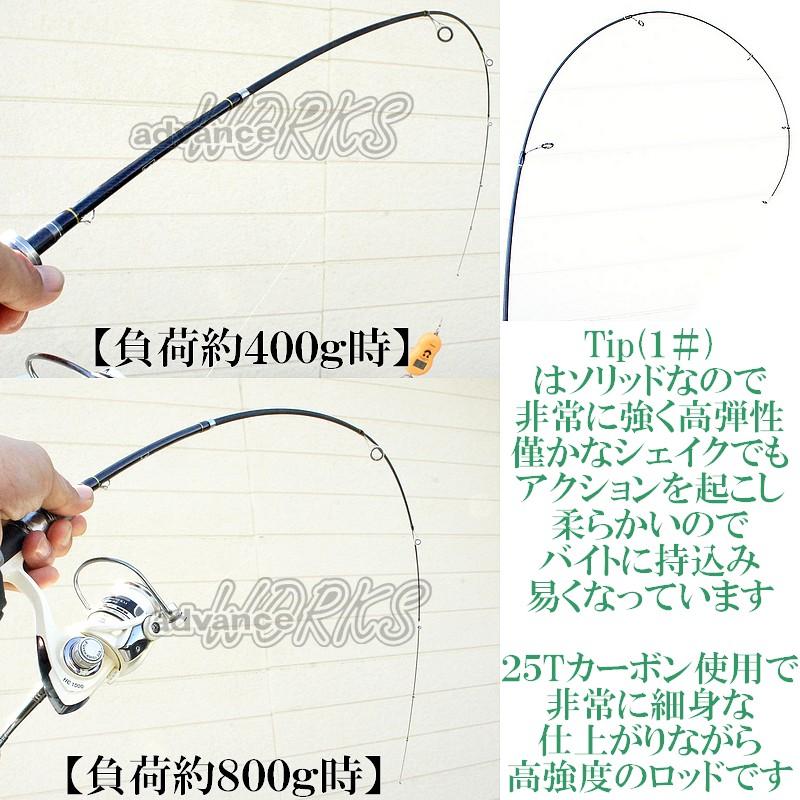 advance WORKS
【負荷約400g時】
advance WORKS
HC1000
【負荷約800g時】
Tip(1#)
はソリッドなので
非常に強く高弾性
僅かなシェイクでも
アクションを起こし
柔らかいので
バイトに持込み
易くなっています
25Tカーボン使用で
非常に細身な
仕上がりながら
高強度のロッドです